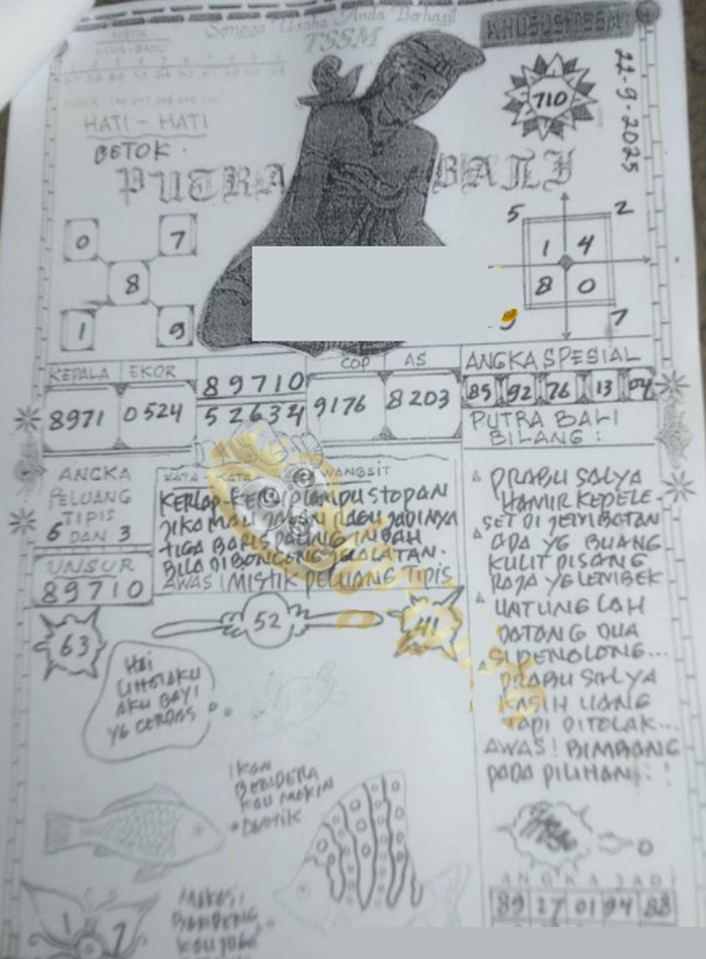 Semoga Usaha Anda Berhasil
TSSM
KHUSUS TSSM
22-9-2025
710
HATI - HATI
BETOK.
PUTRA BALI
0 7
8
1 9
5 2
1 4
8 0
7
KEPALA EKOR COP AS
8971 0524
89710
52634
9176 8203
ANGKA SPESIAL
85 92 76 13 04
PUTRA BALI
BILANG :
ANGKA
PELUANG
TIPIS
6 DAN 3
UNSUR
89710
KATA KATA WANGSIT
LAMPU STOPAN
JIKA MAU JADINYA
TIGA BARIS PALING INDAH
BILA DIBONCENG
AWAS! MISTIK PELUANG TIPIS
PRABU SALYA
HAMIR KEPELE-
SET DI JEMBATAN
ADA YG BUANG
KULIT PISANG
RAJA YG LEMBEK
UNTUNG LAH
DATANG DUA
SI PENOLONG...
PRABU SALYA
KASIH UANG
TAPI DITOLAK...
AWAS! BIMBANG
PADA PILIHAN..!
63
52
41
HAI
AKU BAYI
YG CERDAS
IKAN
BENDERA
KAU MAKIN
CANTIK
BANDENG
KAU JUGA
1 7
ANGKA JADI
89 27 01 94 88